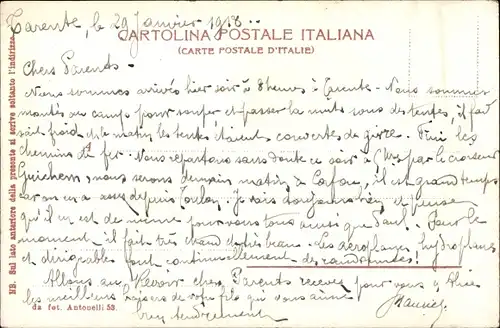 Tarente, le 29 Janvier 1918..
CARTOLINA POSTALE ITALIANA
(CARTE POSTALE D'ITALIE)
Chers Parents -
Nous sommes arrivés hier soir à 8 heures à Tarente - Nous sommes
montés au camp pour souper et passer la nuit sous des tentes, il fait
froid et le matin les tentes étaient couvertes de givre. Fini les
chemins de fer - Nous repartons sans doute ce soir à par le croiseur
Guichem, nous serons demain matin à Corfou, il est grand temps
car on en a assez depuis Toulon. Je vais toujours très et pense
qu'il en est de même pour vous tous ainsi que Paul. Pour le
moment il fait très chaud et très beau - les aéroplanes, hydroplanes
et dirigeables font continuellement des randonnées!
Allons au Revoir chers Parents recevez pour vous y
les meilleurs de votre fils qui vous aime
bien tendrement
da fot. Antonelli 53.
NB. Sul lato anteriore della presente si scrive soltanto l'indirizzo.